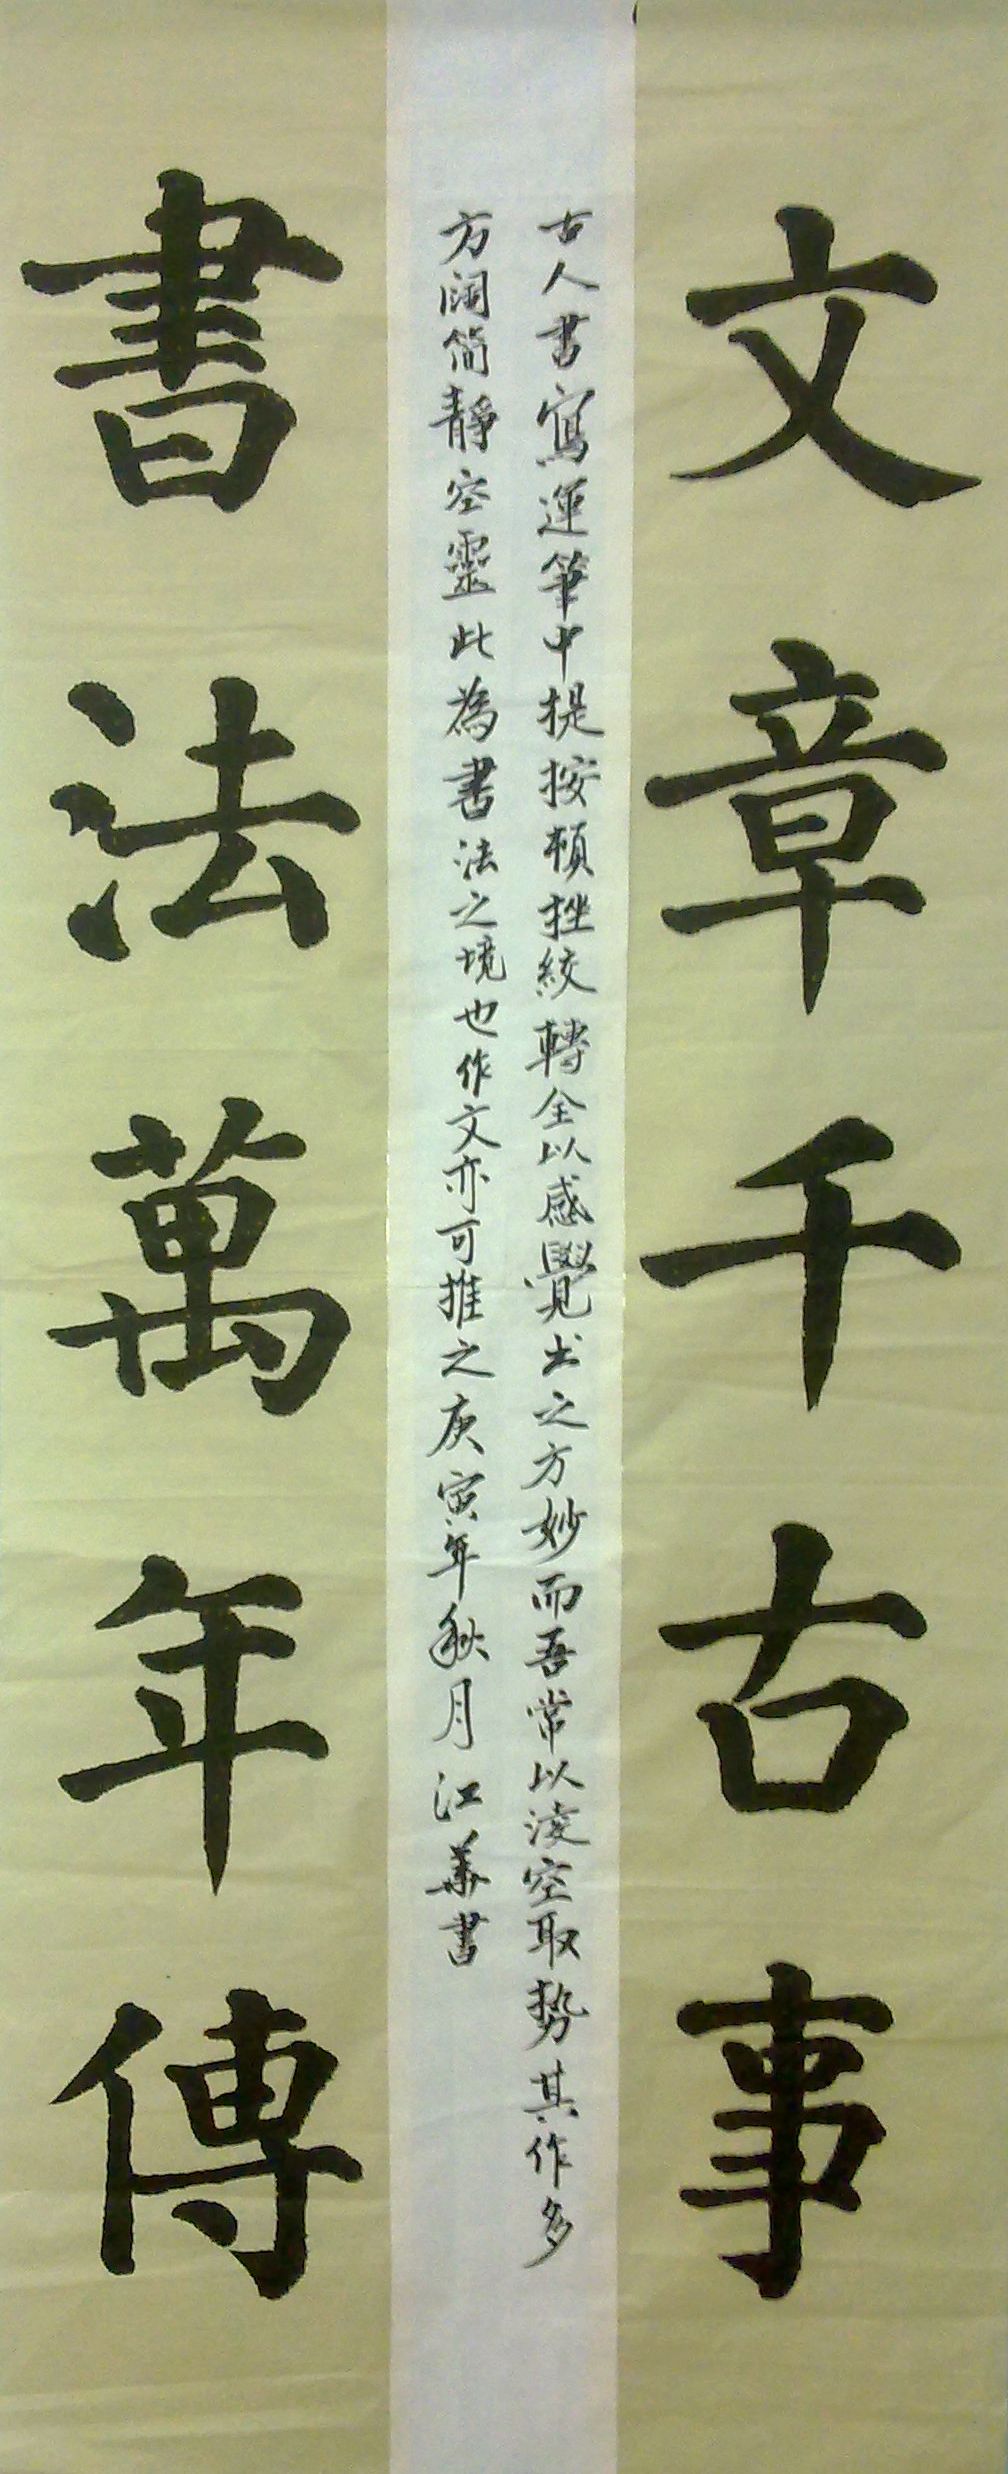 文章千古事
古人書寫運筆中提按頓挫絞轉全以感覺出之方妙而吾常以淩空取勢其作多
方阔简靜空靈此為書法之境也作文亦可推之庚寅年秋月江華書
書法萬年傳